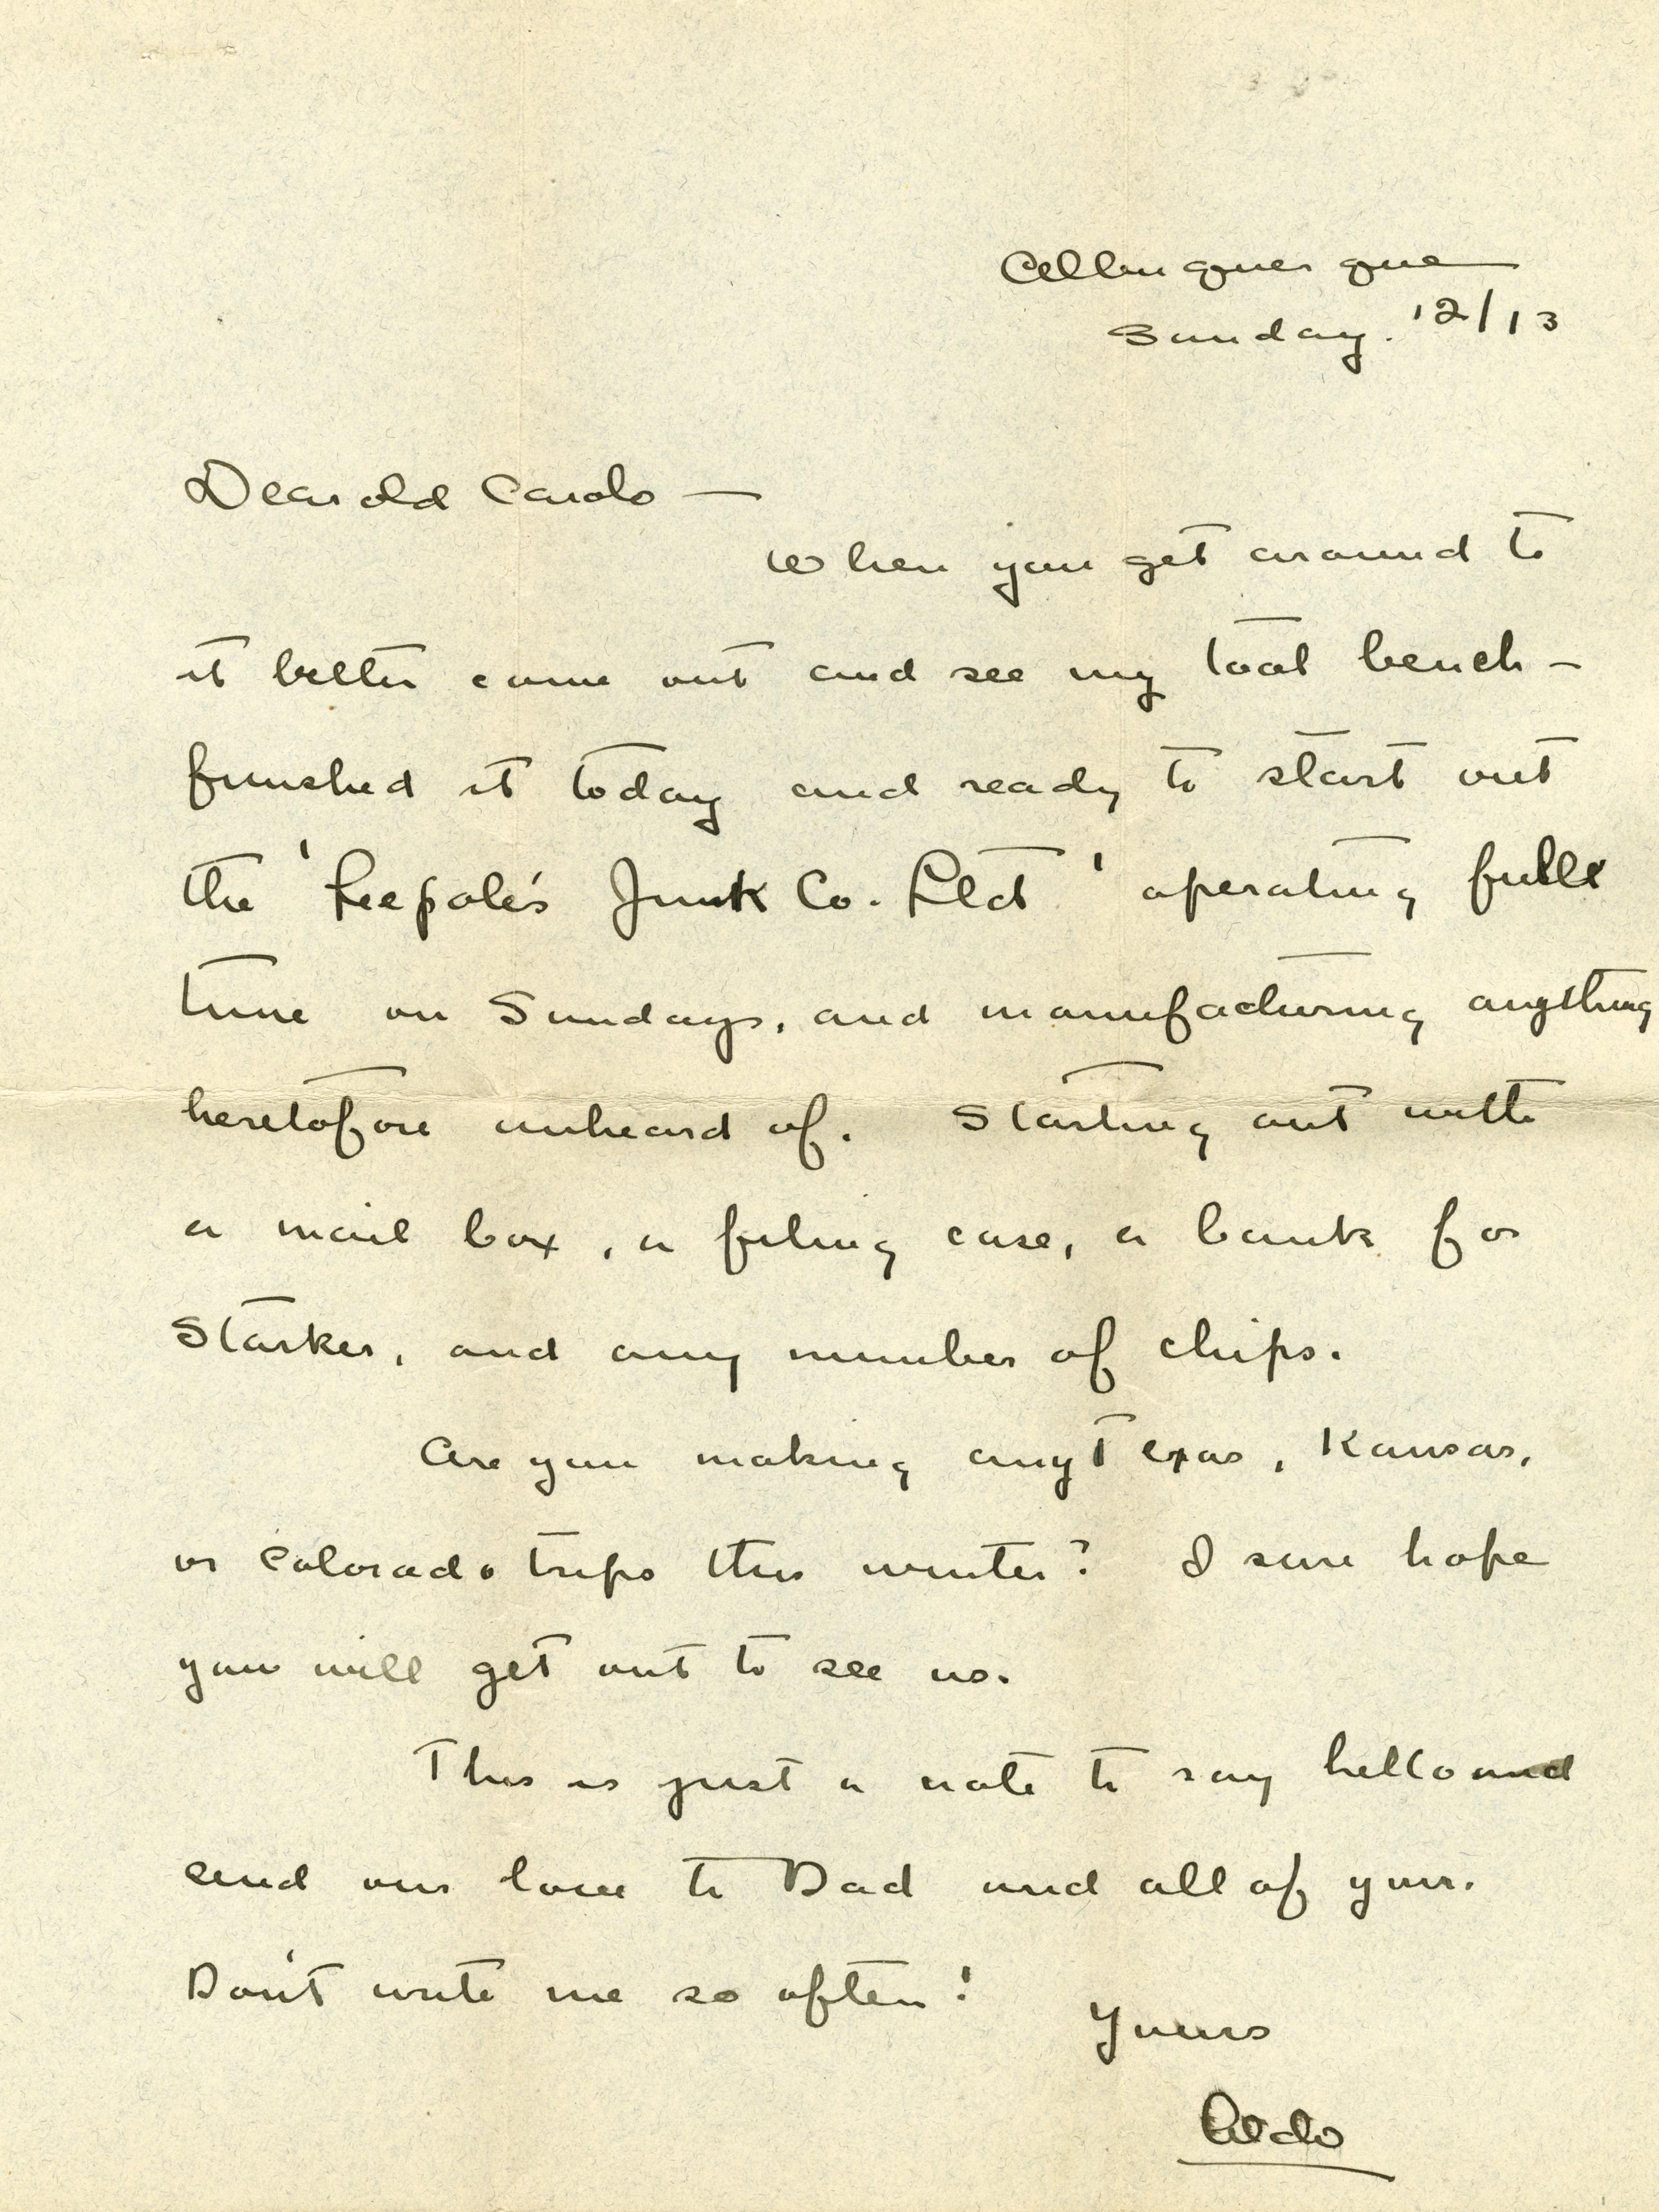 Albuquerque
Sunday. 12/13
Dear old Carolo —
When you get around to
it better come out and see my tool bench —
finished it today and ready to start out
the 'Leepole's Junk Co. Ltd' operating full
time on Sundays, and manufacturing anything
heretofore unheard of. Starting out with
a mail box, a filing case, a bank for
Starker, and any number of chips.
Are you making any Texas, Kansas,
or Colorado trips this winter? I sure hope
you will get out to see us.
This is just a note to say hello and
send our love to Dad and all of you.
Don't write me so often!
Yours
Aldo